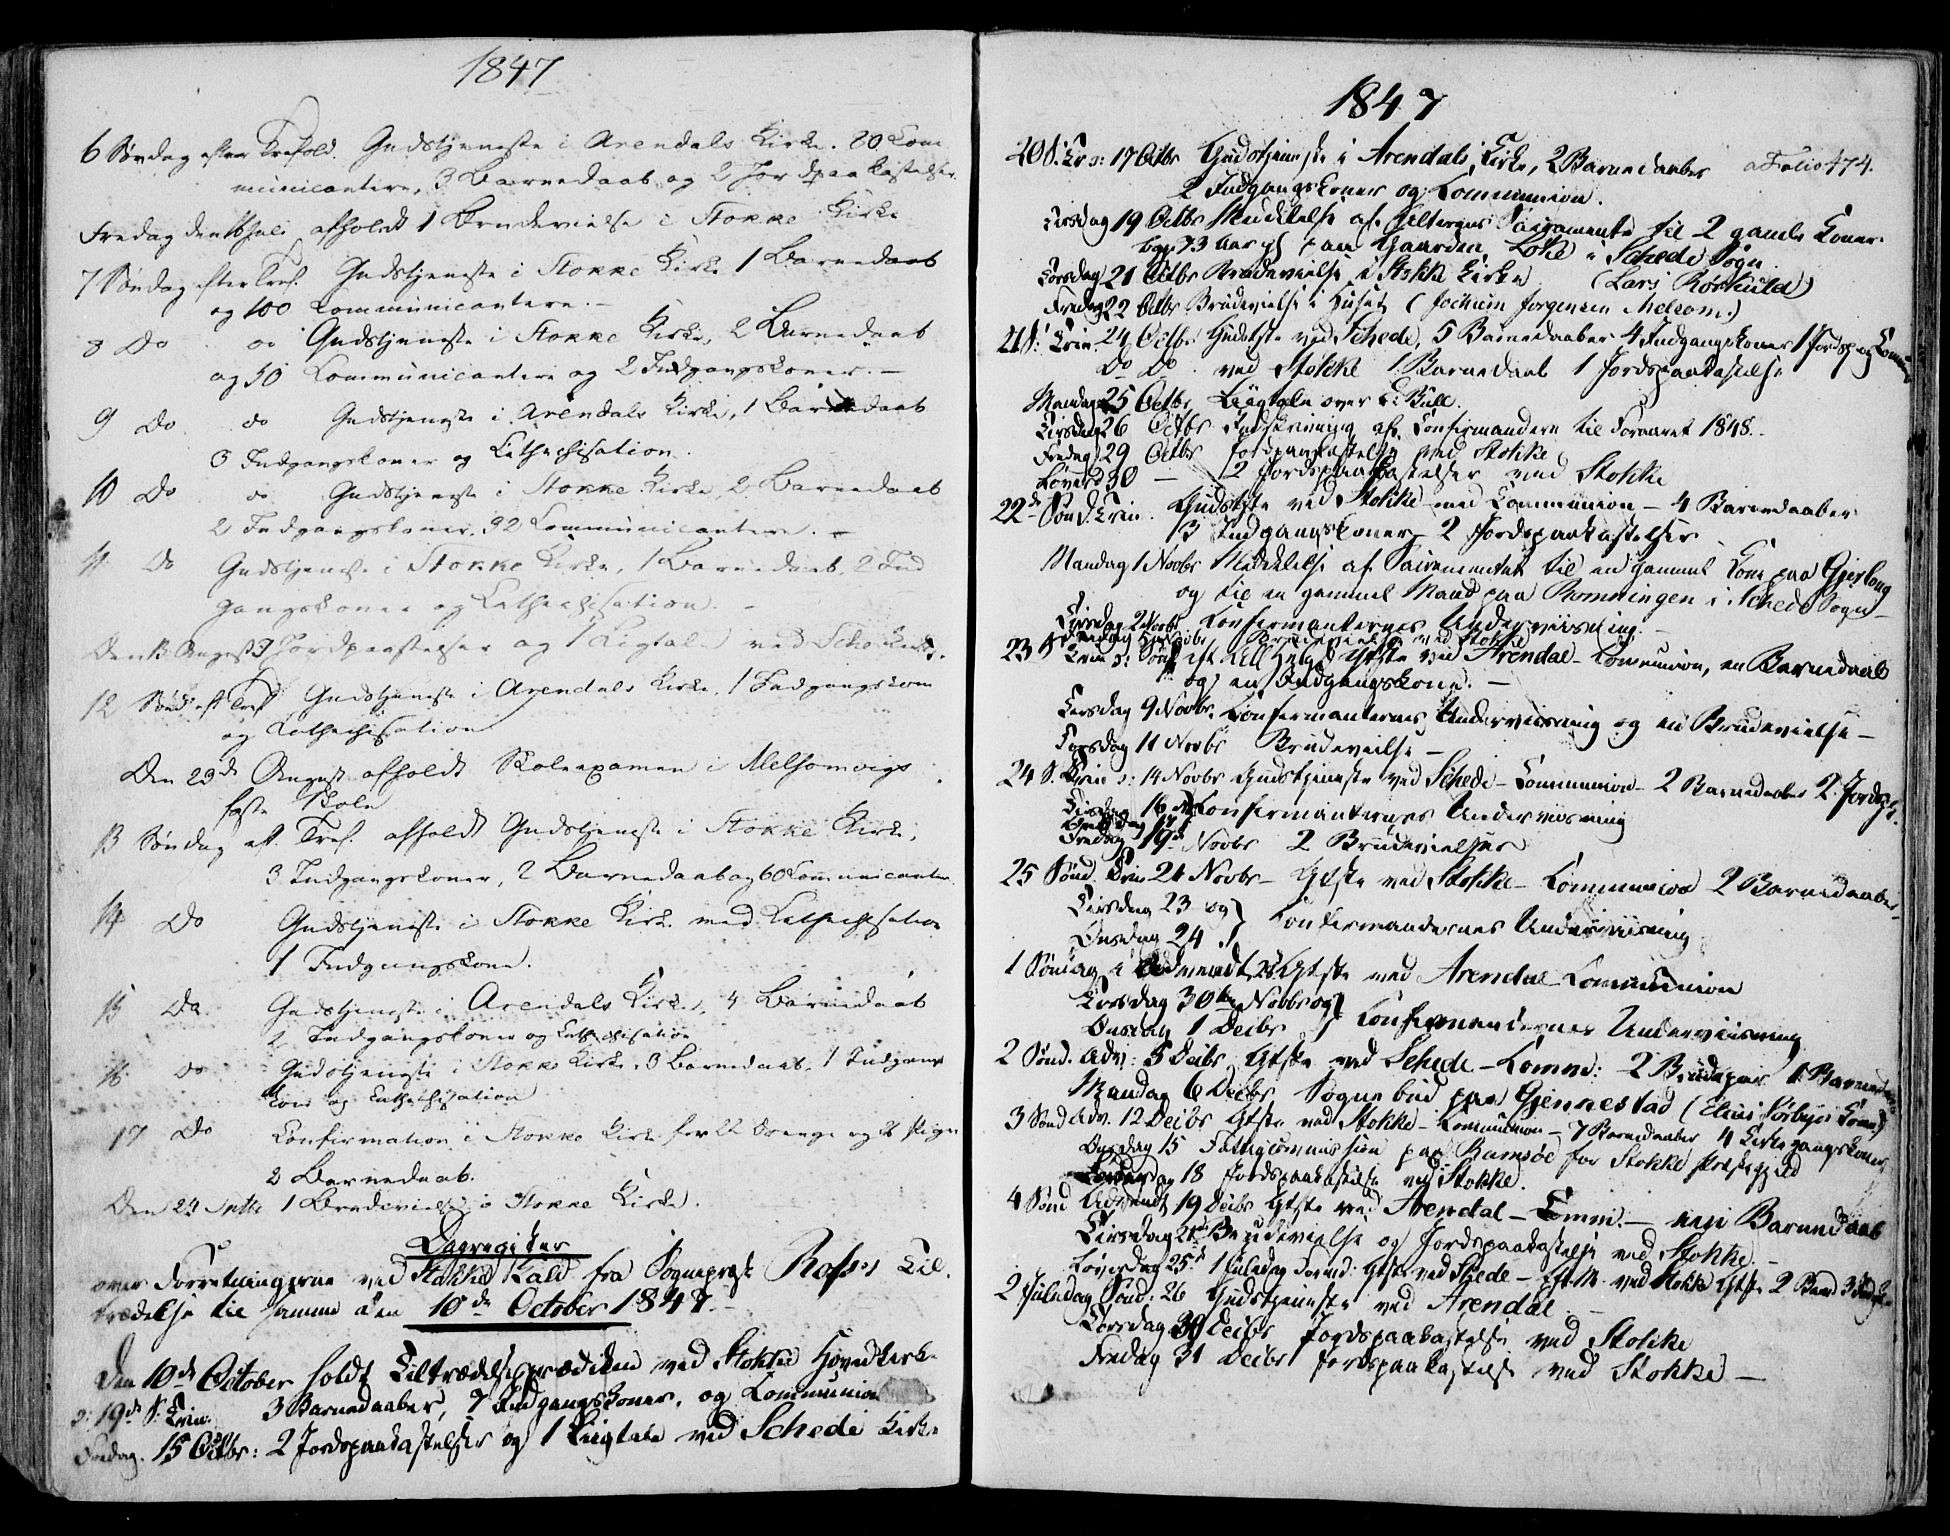 1847
6 Søndag efter Trefold. Gudstjeneste i Arendals Kirke. 80 Com
municantere, 3 Barnedaab og 2 Jordpaakastelser
Fredag den 16 Juli afholdt 1 Brudevielse i Stokke Kirke
7 Søndag efter Tref. Gudstjeneste i Stokke Kirke 1 Barnedaab
og 100 Communicantere. -
8 Do do Gudstjeneste i Stokke Kirke, 2 Barnedaab
og 50 Communicantere og 2 Indgangskoner. -
9 Do do Gudstjeneste i Arendals Kirke, 1 Barnedaab
3 Indgangskoner og Cathechisation.
10 Do do Gudstjeneste i Stokke Kirke, 2 Barnedaab
2 Indgangskoner, 92 Communicantere. -
11 Do Gudstjeneste i Stokke Kirke, 1 Barnedaab, 2 Ind
gangskoner og Cathechisation. -
Den 13 August 2 Jordpaastelser og 1 Ligtale ved Kirke.
12 Sønd eft Tref Gudstjeneste i Arendals Kirke, 1 Indgangskone
og Cathechisation
Den 23de August afholdt Skoleexamen i Melsomvigs
faste Skole
13 Søndag eft. Tref. afholdt Gudstjeneste i Stokke Kirke,
3 Indgangskoner, 2 Barnedaab og 60 Communicanter.
14 Do Gudstjeneste i Stokke Kirke med Cathechisation
1 Indgangskone.
15 Do Gudstjeneste i Arendals Kirke, 4 Barnedaab
2 Indgangskoner og Cathechisation
16 do Gudstjeneste i Stokke Kirke. 3 Barnedaab, 1 Indgangs
kone og Cathechisation
17 Do Confirmation i Stokke Kirke for 22 Drenge og 26 Piger
2 Barnedaab.
Den 23 Septbr 1 Brudevielse i Stokke Kirke.
Dagregister
over Forretningerne ved Stokke Kald fra Sognepræst Til.
trædelse til samme den 10de October 1847. -
Den 10de October holdt Tiltrædelsesprædiken ved Stokke Hovedkirke
ɔ: 19de S. Trin. 3 Barnedaaber, 7 Indgangskoner, og Communion
Fredag. 15 Octbr: 2 Jordpaakastelser og 1 Liigtale ved Schede Kirke
1847
20 S. Tr ɔ: 17 Octbr Gudstjeneste i Arendals Kirke, 2 Barnedaaber a Folio 474.
2 Indgangskoner og Communion.
Tirsdag 19 Octbr Meddelelse af Alterens Sacramente til 2 gamle Koner.
73 Aar gl paa Gaarden Loke i Schede Sogn
Torsdag 21 Octbr Brudevielse i Stokke Kirke (Lars Rørkuld)
Fredag 22 Octbr Brudevielse i Huset (Jochum Jørgensen Melsom.)
21 S: Trin. 24 Octbr Gudstste ved Schede, 5 Barnedaaber 4 Indgangskoner 1 Jordsp og Comm
Do Do ved Stokke 1 Barnedaab 1 Jordspaakastelse
Mandag 25 Octbr Liigtale over E. Bull.
Tirsdag 26 Octbr Indskrivning af Confirmandere til Foraaret 1848.
Fredag 29 Octbr Jordpaakastelse ved Stokke
Løverd 30 - 2 Jordspaakastelser ved Stokke
22de Sønd. Trin. Gudstste ved Stokke med Communion - 4 Barnedaaber
13 Indgangskoner 2 Jordspaakastelser
Mandag 1 Novbr Meddelelse af Sacramentet til en gammel Kone paa Gjerlaug
og til en gammel Mand paa Romningen i Schede Sogn -
Tirsdag 2 Novbr Confirmanternes Underviisning. -
Brudevielse ved Stokke
23 S Trin ɔ: Gtste ved Arendal - Communion, en Barnedaab
og en Indgangskone. -
Tirsdag 9 Novbr. Confirmanternes Underviisning og en Brudevielse -
Torsdag 11 Novbr Brudevielse -
24 S. Trin ɔ: 14 Novbr Gudstjeneste ved Schede - Communion - 2 Barnedaaber 2 Jordsp.
Tirsdag 16 Confirmanternes Underviisning
Fredag 19de Novbr 2 Brudevielser
25 Sønd. Trin 21 Novbr - Gtste ved Stokke - Communion 2 Barnedaaber,
Tirsdag 23 og
Onsdag 24 } Confirmandernes Underviisning
1 Søndag i Advendt 28 Gtste ved Arendal Communion
Tirsdag 30te Novbr og
Onsdag 1 Decbr } Confirmandernes Underviisning
2 Sønd. Adv: 5 Decbr Gtste ved Schede - Comm: 2 Brudepar 1 Barnedaab
Mandag 6 Decbr Sognebud paa Gjennestad
3 Sønd Adv. 12 Decbr Gtste ved Stokke - Communion - 7 Barnedaaber 4 Kirkegangskoner
Onsdag 15 Fattigcommission paa Ramsøe for Stokke Præstegjeld
Løverdag 18 Jordspaakastelse ved Stokke.
4 Sønd Advendt 19 Decbr Gtste ved Arendal - Comm. - een Barnedaab
Tirsdag 21de Brudevielse og Jordspaakastelse ved Stokke. -
Løverdag 25de 1 Juledag Formd: Gtste ved Skede - Eft. M. ved Stokke Gtste 2 Barnd 3
2 Juledag Sønd: 26 Gudstjeneste ved Arendal. -
Torsdag 30 Decbr Jordspaakastelse ved Stokke
Fredag 31 Decbr Jordspaakastelse ved Stokke -